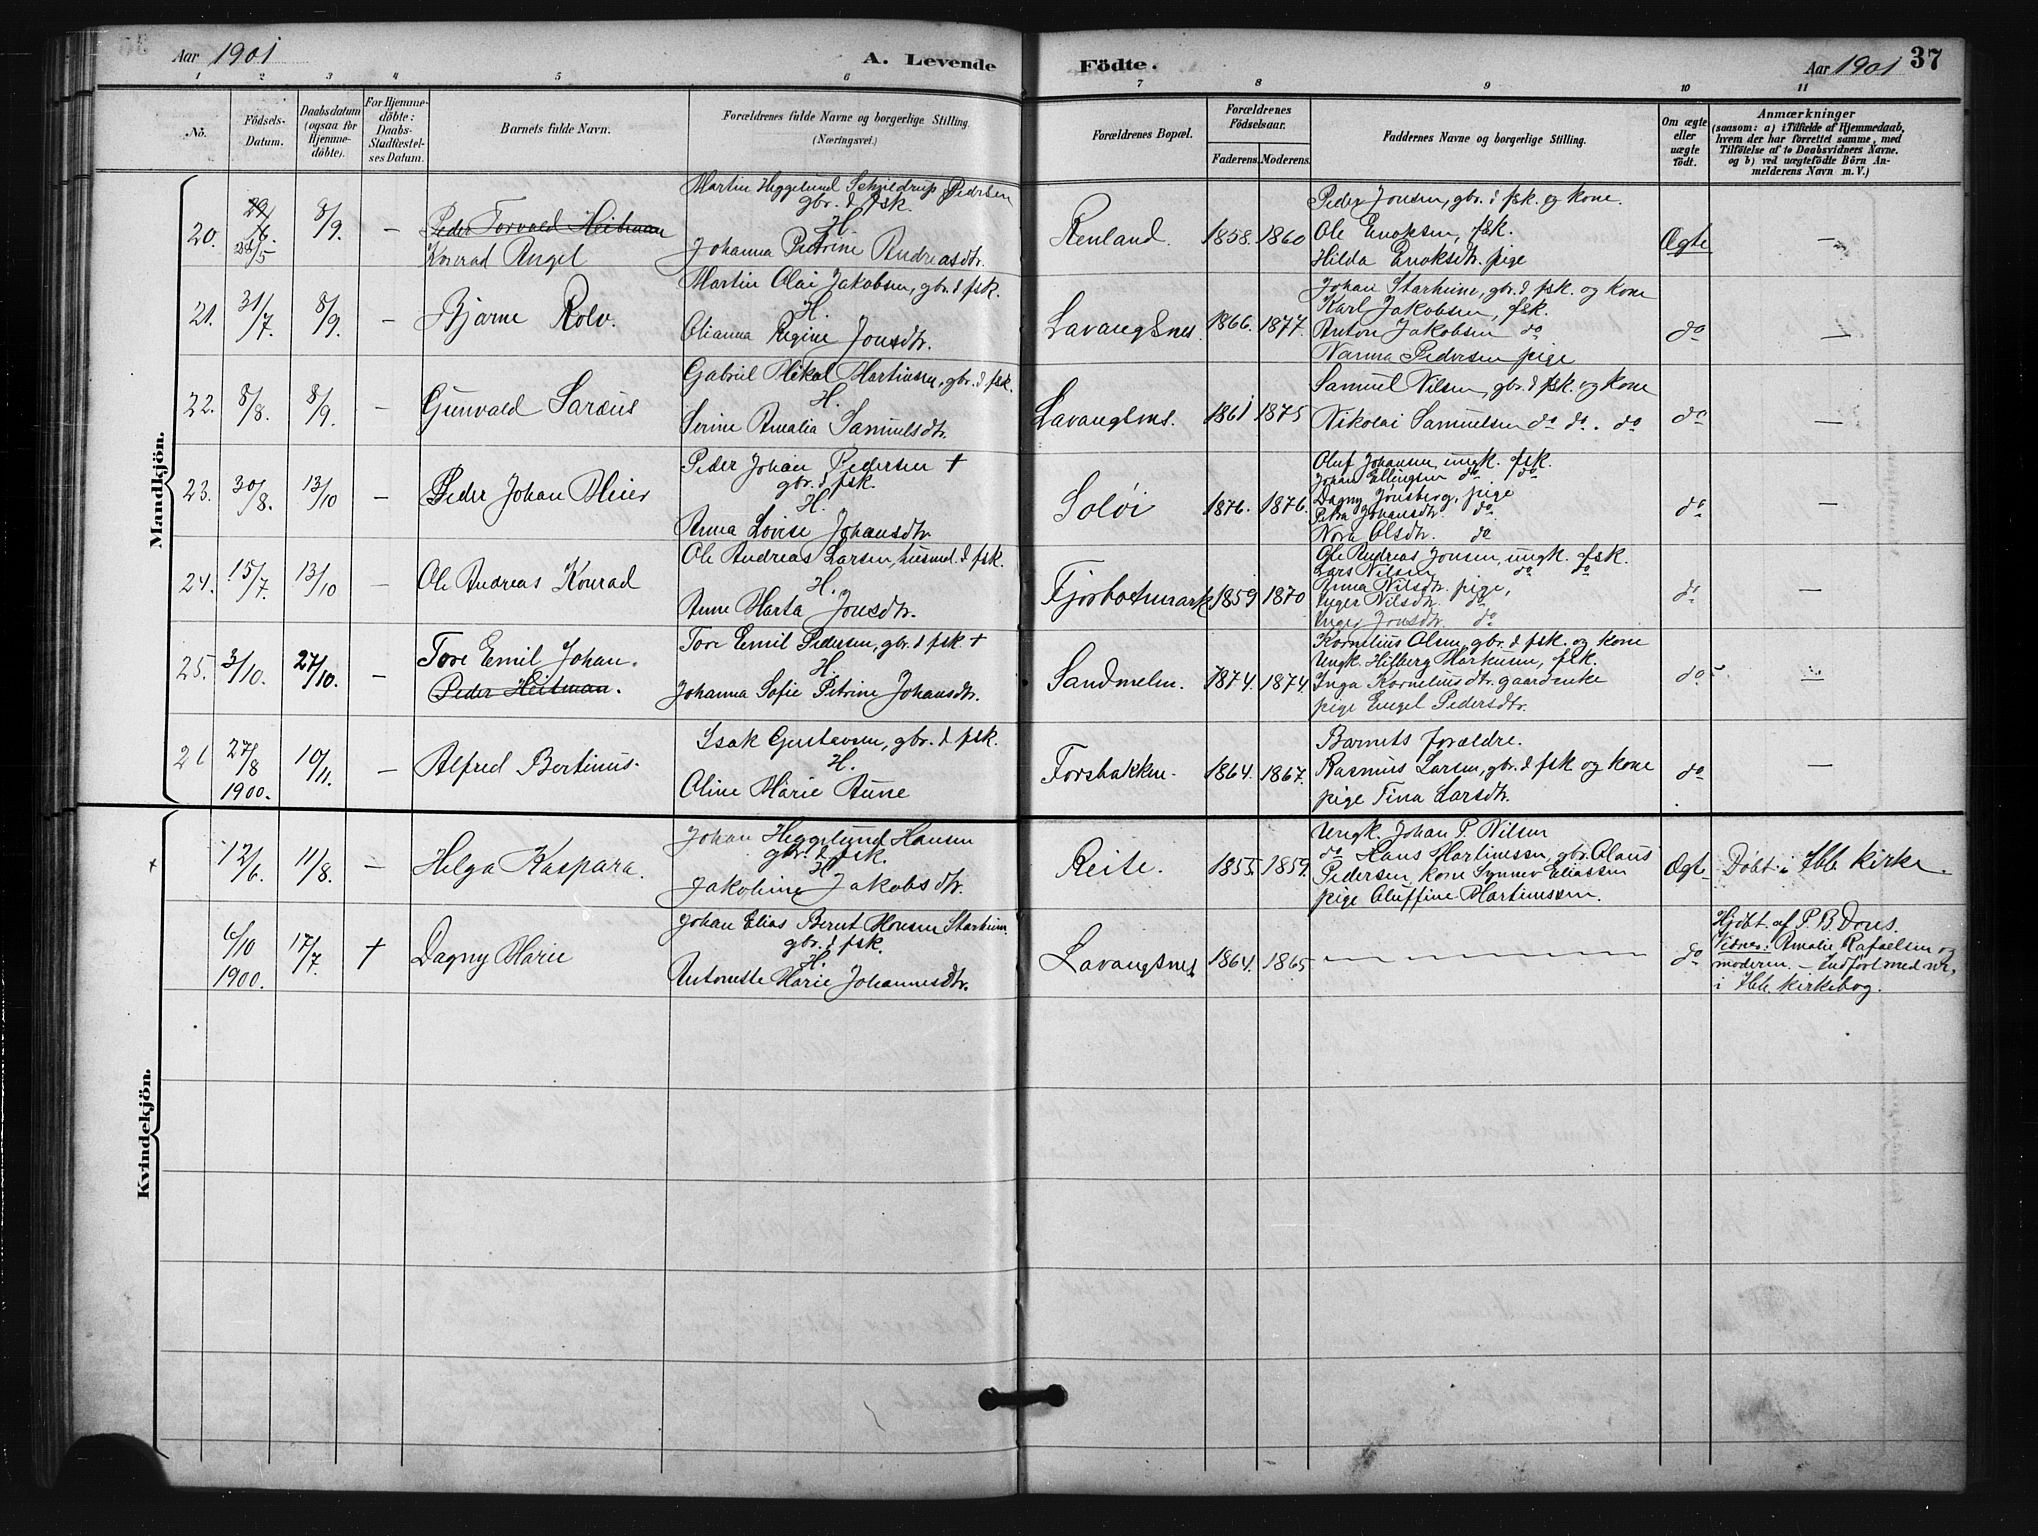 Aar 1901
A. Levende Födte.
Aar 1901
37
1 2 3 4 5 6 7 8 9 10 11
No.
Födsels-Datum.
Daabsdatum (ogsaa for Hjemmedöbte).
For Hjemmedöbte: Daabs-Stadfæstelses Datum.
Barnets fulde Navn.
Forældrenes fulde Navne og borgerlige Stilling.
(Næringsvei.)
Forældrenes Bopæl.
Forældrenes Födselsaar.
Faderens. Moderens.
Faddernes Navne og borgerlige Stilling.
Om ægte eller uægte födt.
Anmærkninger
(saasom: a) i Tilfælde af Hjemmedaab,
hvem der har forrettet samme, med
Tilföielse af to Daabsvidners Navne.
og b) ved uægtefödte Börn An-
melderens Navn m. V.)
Mandkjön.
20. 28/5 8/9. —
Peder Torvald Heitman
Konrad Angel
Martin Heggelund Schjeldrup Pedersen
gbr. & fsk.
H.
Johanna Petrine Andreasdtr.
Renland. 1858. 1860
Peder Jonsen, gbr. & fsk. og kone.
Ole Enoksen, fsk.
Hilda Enoksdtr. pige
Ægte —
21. 31/7. 8/9. —
Bjarne Rolv.
Martin Olai Jakobsen, gbr. & fsk.
H.
Olianna Regine Jonsdtr.
Lavangsnes. 1866. 1877.
Johan Starheim, gbr. & fsk. og kone
Karl Jakobsen, fsk.
Anton Jakobsen do
Nanna Pedersen pige
do —
22. 8/8. 8/9. —
Gunvald Saræus
Gabriel Mikal Martinsen, gbr. & fsk.
H.
Serine Amalia Samuelsdtr.
Lavangsnes. 1861 1875
Samuel Nilsen, gbr. & fsk. og kone
Nikolai Samuelsen do do. do
do —
23. 30/8. 13/10 —
Peder Johan Meier
Peder Johan Pedersen +
gbr. & fsk.
H.
Anna Lovise Johansdtr.
Soløi 1876. 1876.
Oluf Johansen, ungk. fsk.
Johan Ellingsen do do
Dagny Jønsberg, pige
Petra Johansdtr. do
Nora Olsdtr. do
do —
24. 15/7. 13/10 —
Ole Andreas Konrad
Ole Andreas Larsen, husmd. & fsk.
H.
Anne Marta Jonsdtr.
1859 1870
Ole Andreas Jonsen, ungk. fsk.
Lars Nilsen do do
Anna Nilsdtr. pige,
Inger Nilsdtr. do
Inger Jonsdtr. do
do —
25. 3/10. 27/10. —
Tore Emil Johan.
Peder Heitman.
Tore Emil Pedersen, gbr. & fsk +
H.
Johanna Sofie Petrine Johansdtr.
Sandmelen. 1874. 1874.
Kornelius Olsen, gbr. & fsk. og kone
Ungk. Hilberg Markusen, fsk.
Inga Korneliusdtr. gaardenke
pige Engel Pedersdtr.
do —
26 27/8 1900. 10/11. —
Alfred Bertinus.
Isak Gustavsen, gbr. & fsk.
H.
Oline Marie Aune
Forsbakken. 1864. 1867.
Barnets forældre.
Rasmus Larsen, gbr. & fsk og kone
pige Tina Larsdtr.
do —
Kvindekjön.
12/6. 11/8. —
Helga Kaspara.
Johan Heggelund Hansen
gbr. & fsk.
H
Jakobine Jakobsdtr.
Reite. 1855. 1859.
Ungk. Johan P. Nilsen
do Hans Martinussen, gbr. Olaus
Pedersen, kone Synnev Eliassen
pige Oluffine Martinussen.
Ægte Døbt i Ibb. kirke.
6/10 1900. 17/7. †
Dagny Marie
Johan Elias Bernt Monsen Starheim.
gbr. & fsk.
H.
Antonette Marie Johannesdtr.
Lavangsnes 1864. 1865
do
Hjdbt. af P. B. Dons.
Vidner: Amalie Rafaelsen og
moderen. – Indført med nr.
i Ibb. kirkebog.